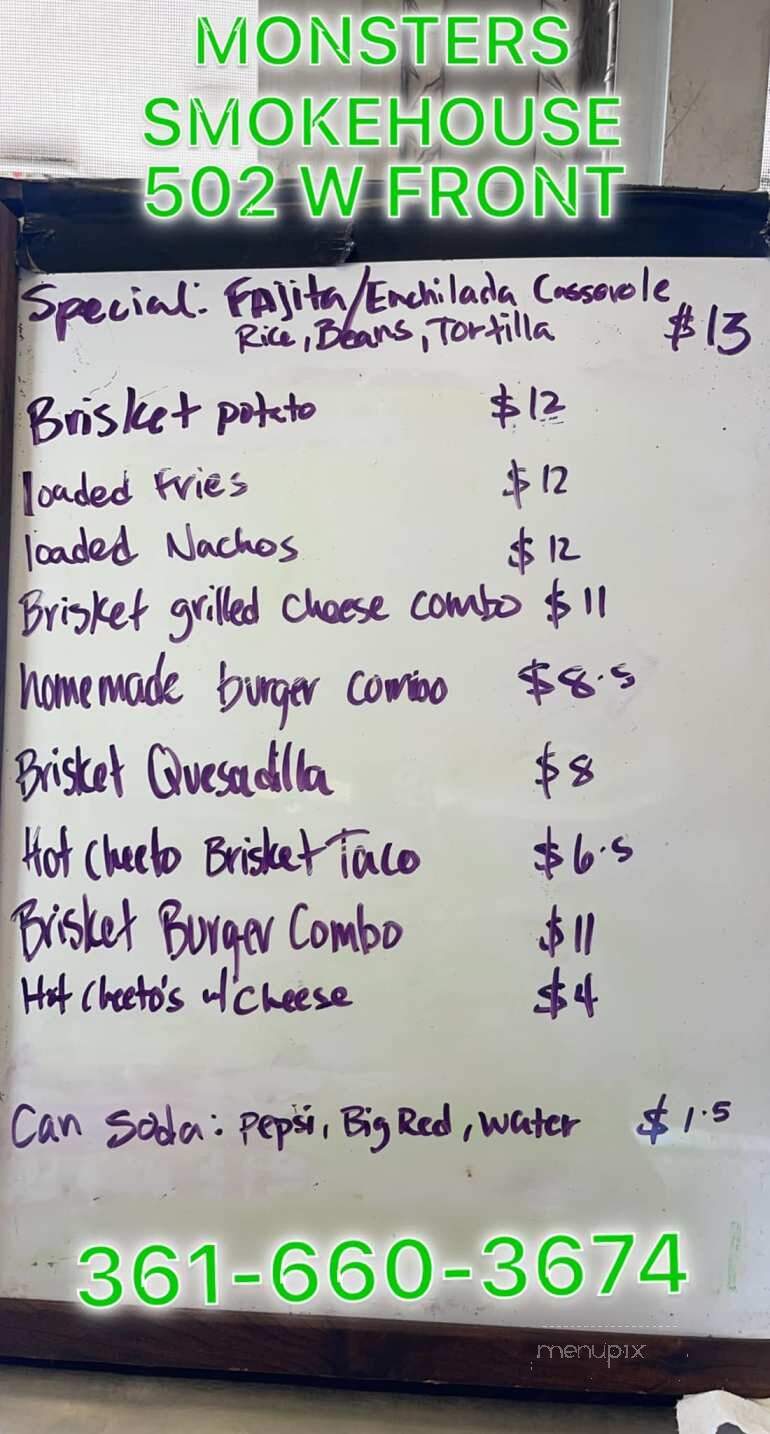 MONSTERS
SMOKEHOUSE
502 W FRONT
Special: Fajita/Enchilada Casserole
Rice, Beans, Tortilla $13
Brisket potato $12
loaded Fries $12
loaded Nachos $12
Brisket grilled cheese combo $11
homemade burger combo $8.5
Brisket Quesadilla $8
Hot Cheeto Brisket Taco $6.5
Brisket Burger Combo $11
Hot Cheeto's w/ Cheese $4
Can Soda: Pepsi, Big Red, Water $1.5
361-660-3674
menupix